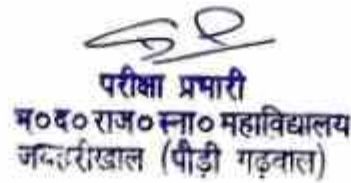 परीक्षा प्रभारी
भ०द० राज० स्ना० महाविद्यालय
जयहरीखाल (पौड़ी गढ़वाल)